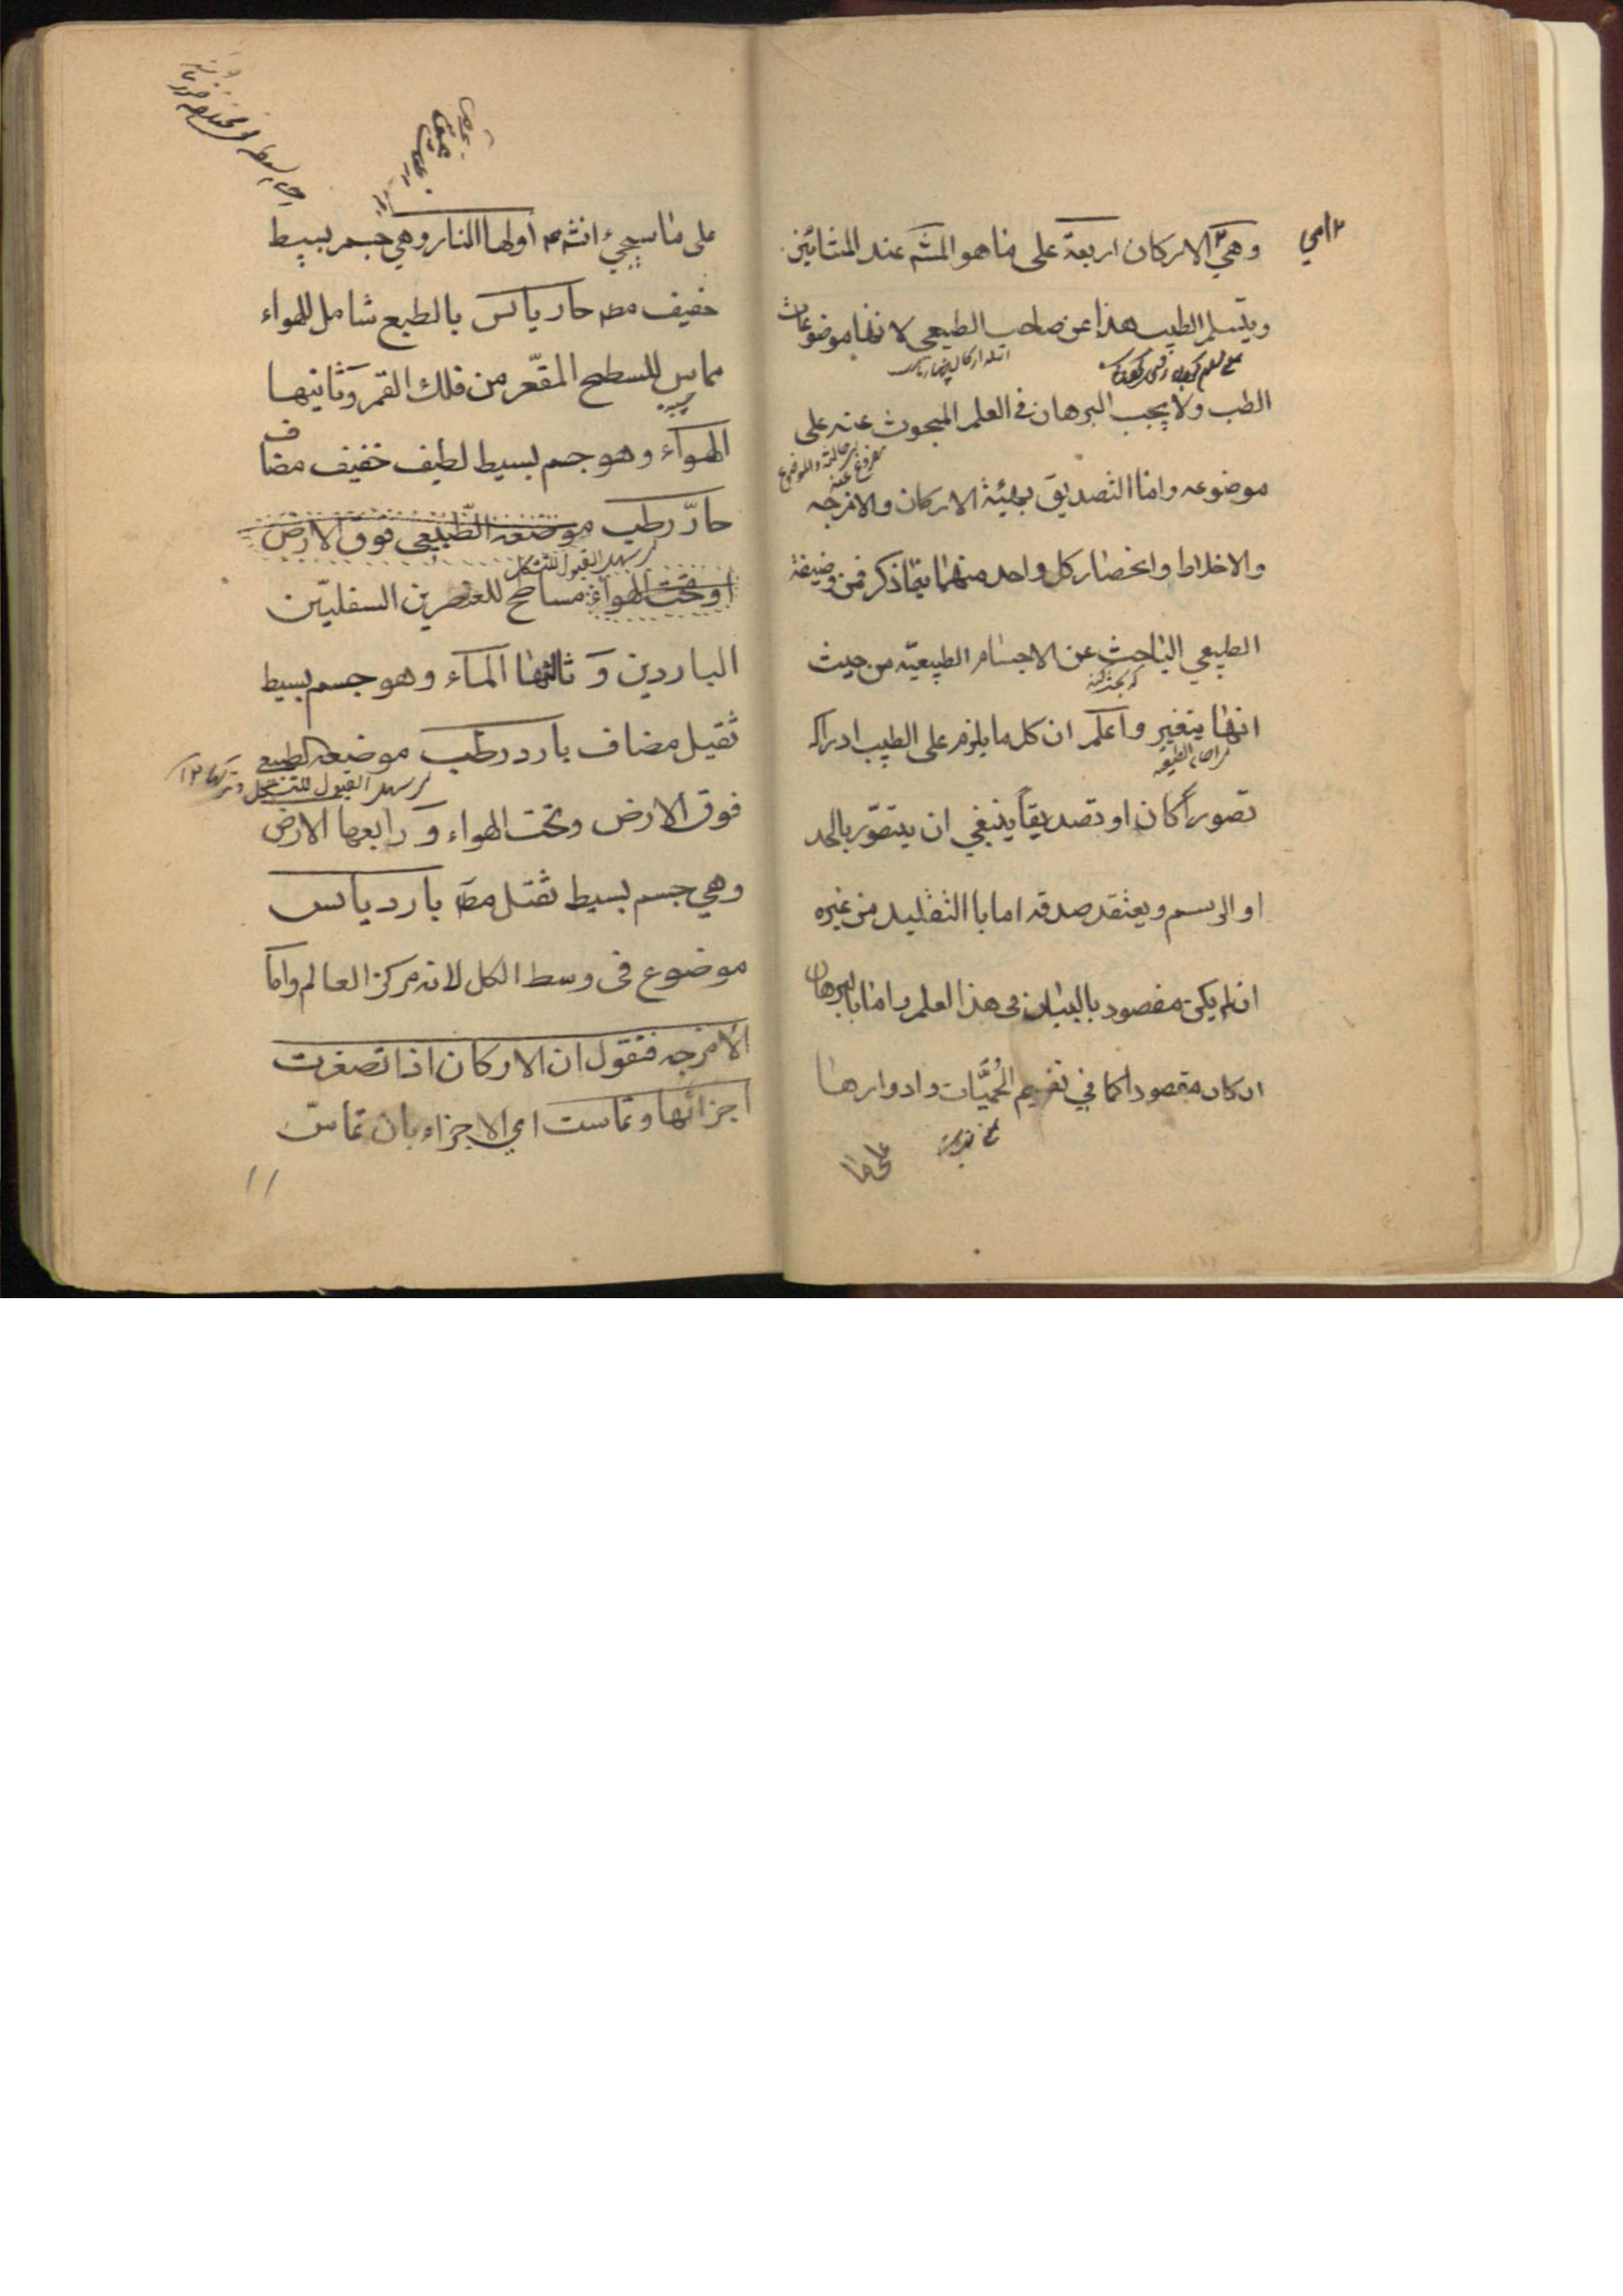 وهي الاركان اربعة على ما هو المشه عند المشائين
٢ اي
ويتسلم الطبيب هذا عن صاحب الطبيعي لانها موضوعات
الطب ولا يجب البرهان في العلم المبحوث عنه على
موضوعه واما التصديق بهيئة الاركان والامزجه
والاخلاط وانحصار كل واحد منهما بماذكر فمن وضيفة
الطبيعي الباحث عن الاجسام الطبيعيه من حيث
انها يتغير واعلم ان كل ما يلزم على الطبيب ادراكه
تصوراً كان او تصديقاً ينبغي ان يتصور بالحد
او الرسم ويعتقد صدقه اما باالتقليد من غيره
ان لم يكن مقصود بالبيان فى هذا العلم واما بالبرهان
ان كان مقصودا كما في تقسيم الحُمَّيات وادوارها
على ما
على ما سيجيء انشه اولها النار وهي جسم بسيط
خفيف مط حار يابس بالطبع شامل للهواء
مماس للسطح المقعّر من فلك القمر وثانيها
الهوآء وهو جسم بسيط لطيف خفيف مضاف
حارّ رطب موضعه الطّبيعى فوق الارض
لسهل القبول للتشكل
او تحت الهواء مسامح للعنصرين السفليّين
الباردين وَ ثالثها المآء وهو جسم بسيط
ثقيل مضاف بارد رطب موضعه الطبيعي
لسهل القبول للتشكل
فوق الارض وتحت الهواء وَ رابعها الارض
وهي جسم بسيط ثقيل مط بارد يابس
موضوع فى وسط الكل لانه مركز العالم واما
الامزجه فنقول ان الاركان اذا تصغرت
اجزائها وتماست اي الاجزاء بان تماسّ
١١